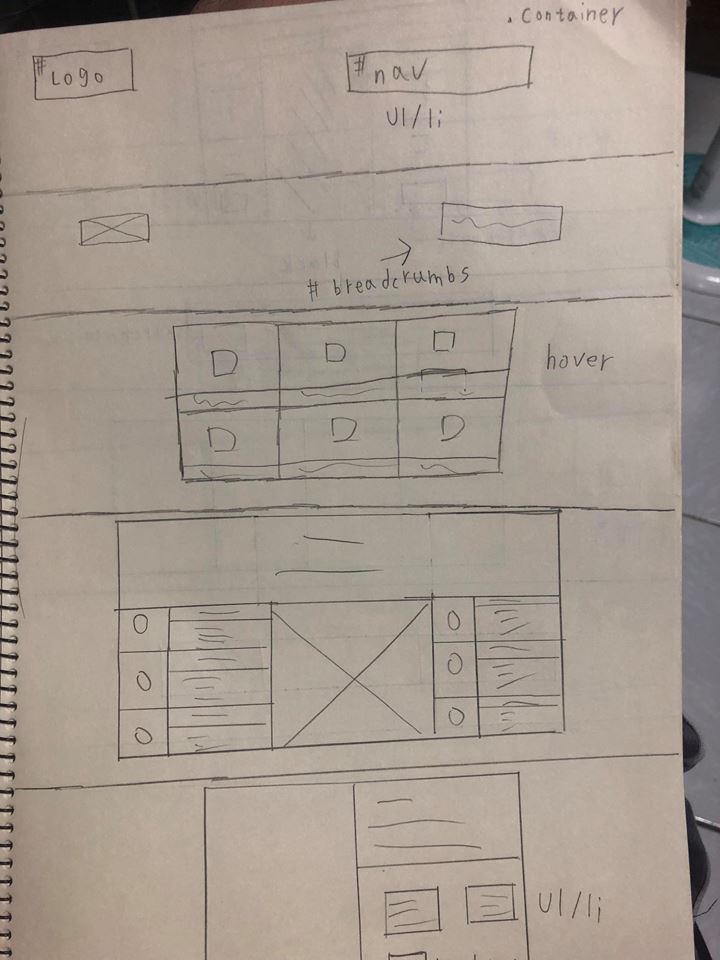 .container
#Logo
#nav
ul/li
#breadcrumbs
hover
ul/li